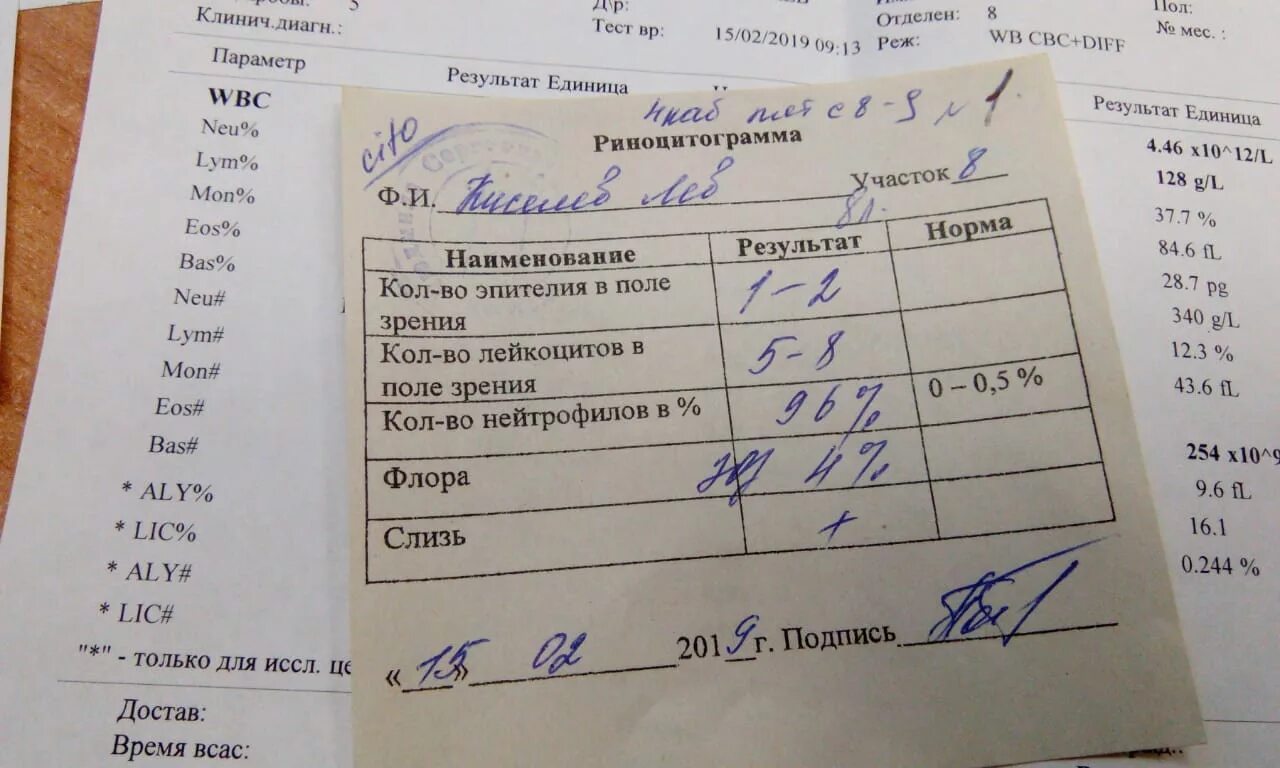 5
Клинич.диагн.:
Д\р:
Тест вр: 15/02/2019 09:13
Отделен: 8
Реж: WB CBC+DIFF
Пол:
№ мес. :
Параметр
Результат Единица
WBC
Neu%
Lym%
Mon%
Eos%
Bas%
Neu#
Lym#
Mon#
Eos#
Bas#
* ALY%
* LIC%
* ALY#
* LIC#
"*" - только для иссл. це
Достав:
Время всас:
cito
с 8-9 1
Риноцитограмма
Ф.И. Киселев Лев Участок 8
8л.
Наименование Результат Норма
Кол-во эпителия в поле зрения 1-2
Кол-во лейкоцитов в поле зрения 5-8
Кол-во нейтрофилов в % 96% 0 – 0,5 %
Флора 4%
Слизь +
«15» 02 2019 г. Подпись
Результат Единица
4.46 x10^12/L
128 g/L
37.7 %
84.6 fL
28.7 pg
340 g/L
12.3 %
43.6 fL
254 x10^9
9.6 fL
16.1
0.244 %